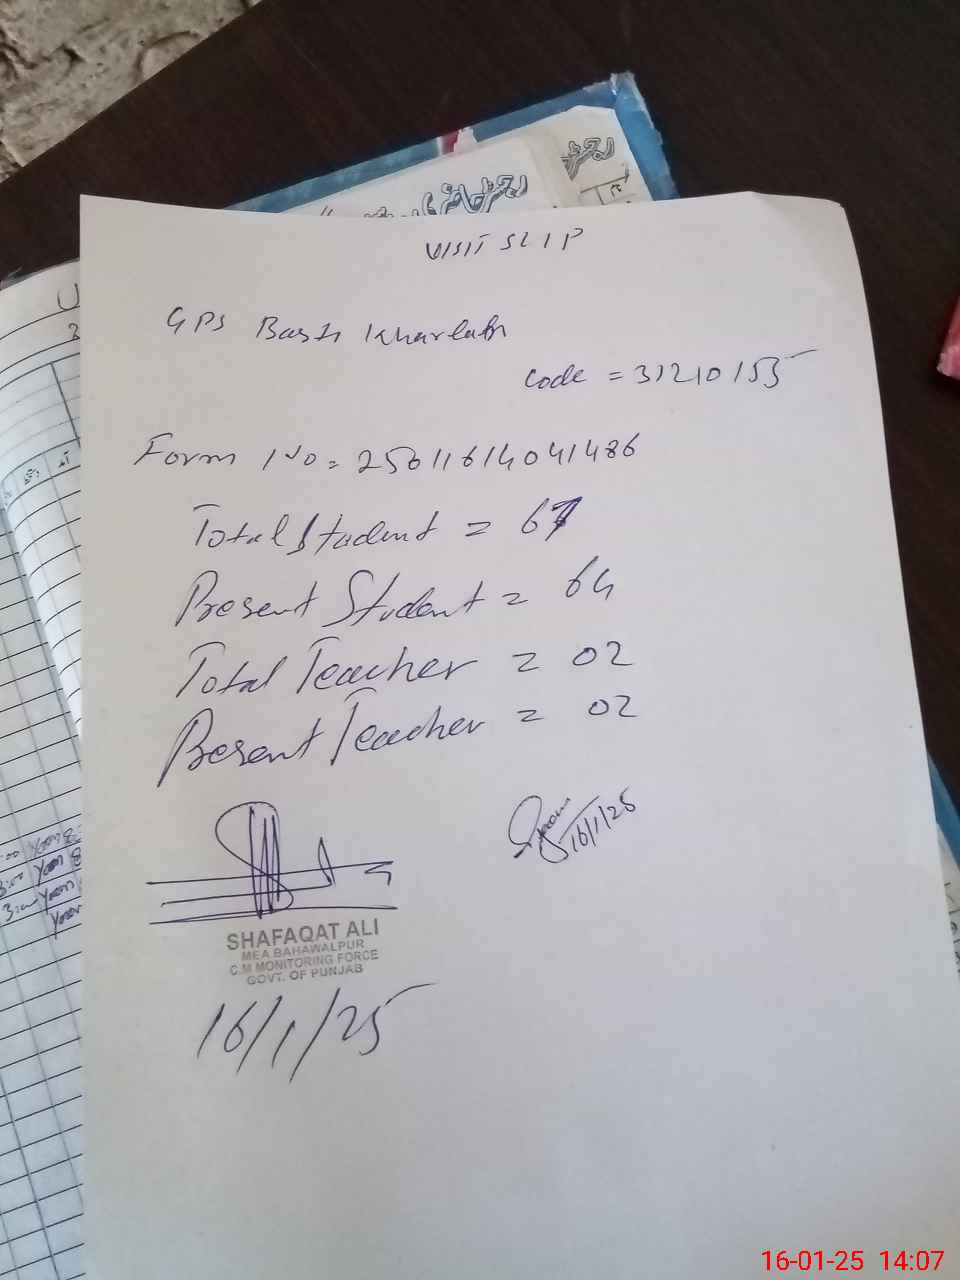 رجسٹر
رجسٹر حاضری
VISIT SLIP
GPS Basti Kharlabn
Code = 31210155
Form No = 25011614041486
Total Student = 67
Present Student = 64
Total Teacher = 02
Present Teacher = 02
16/1/25
SHAFAQAT ALI
MEA BAHAWALPUR
C.M MONITORING FORCE
GOVT. OF PUNJAB
16/1/25
16-01-25 14:07